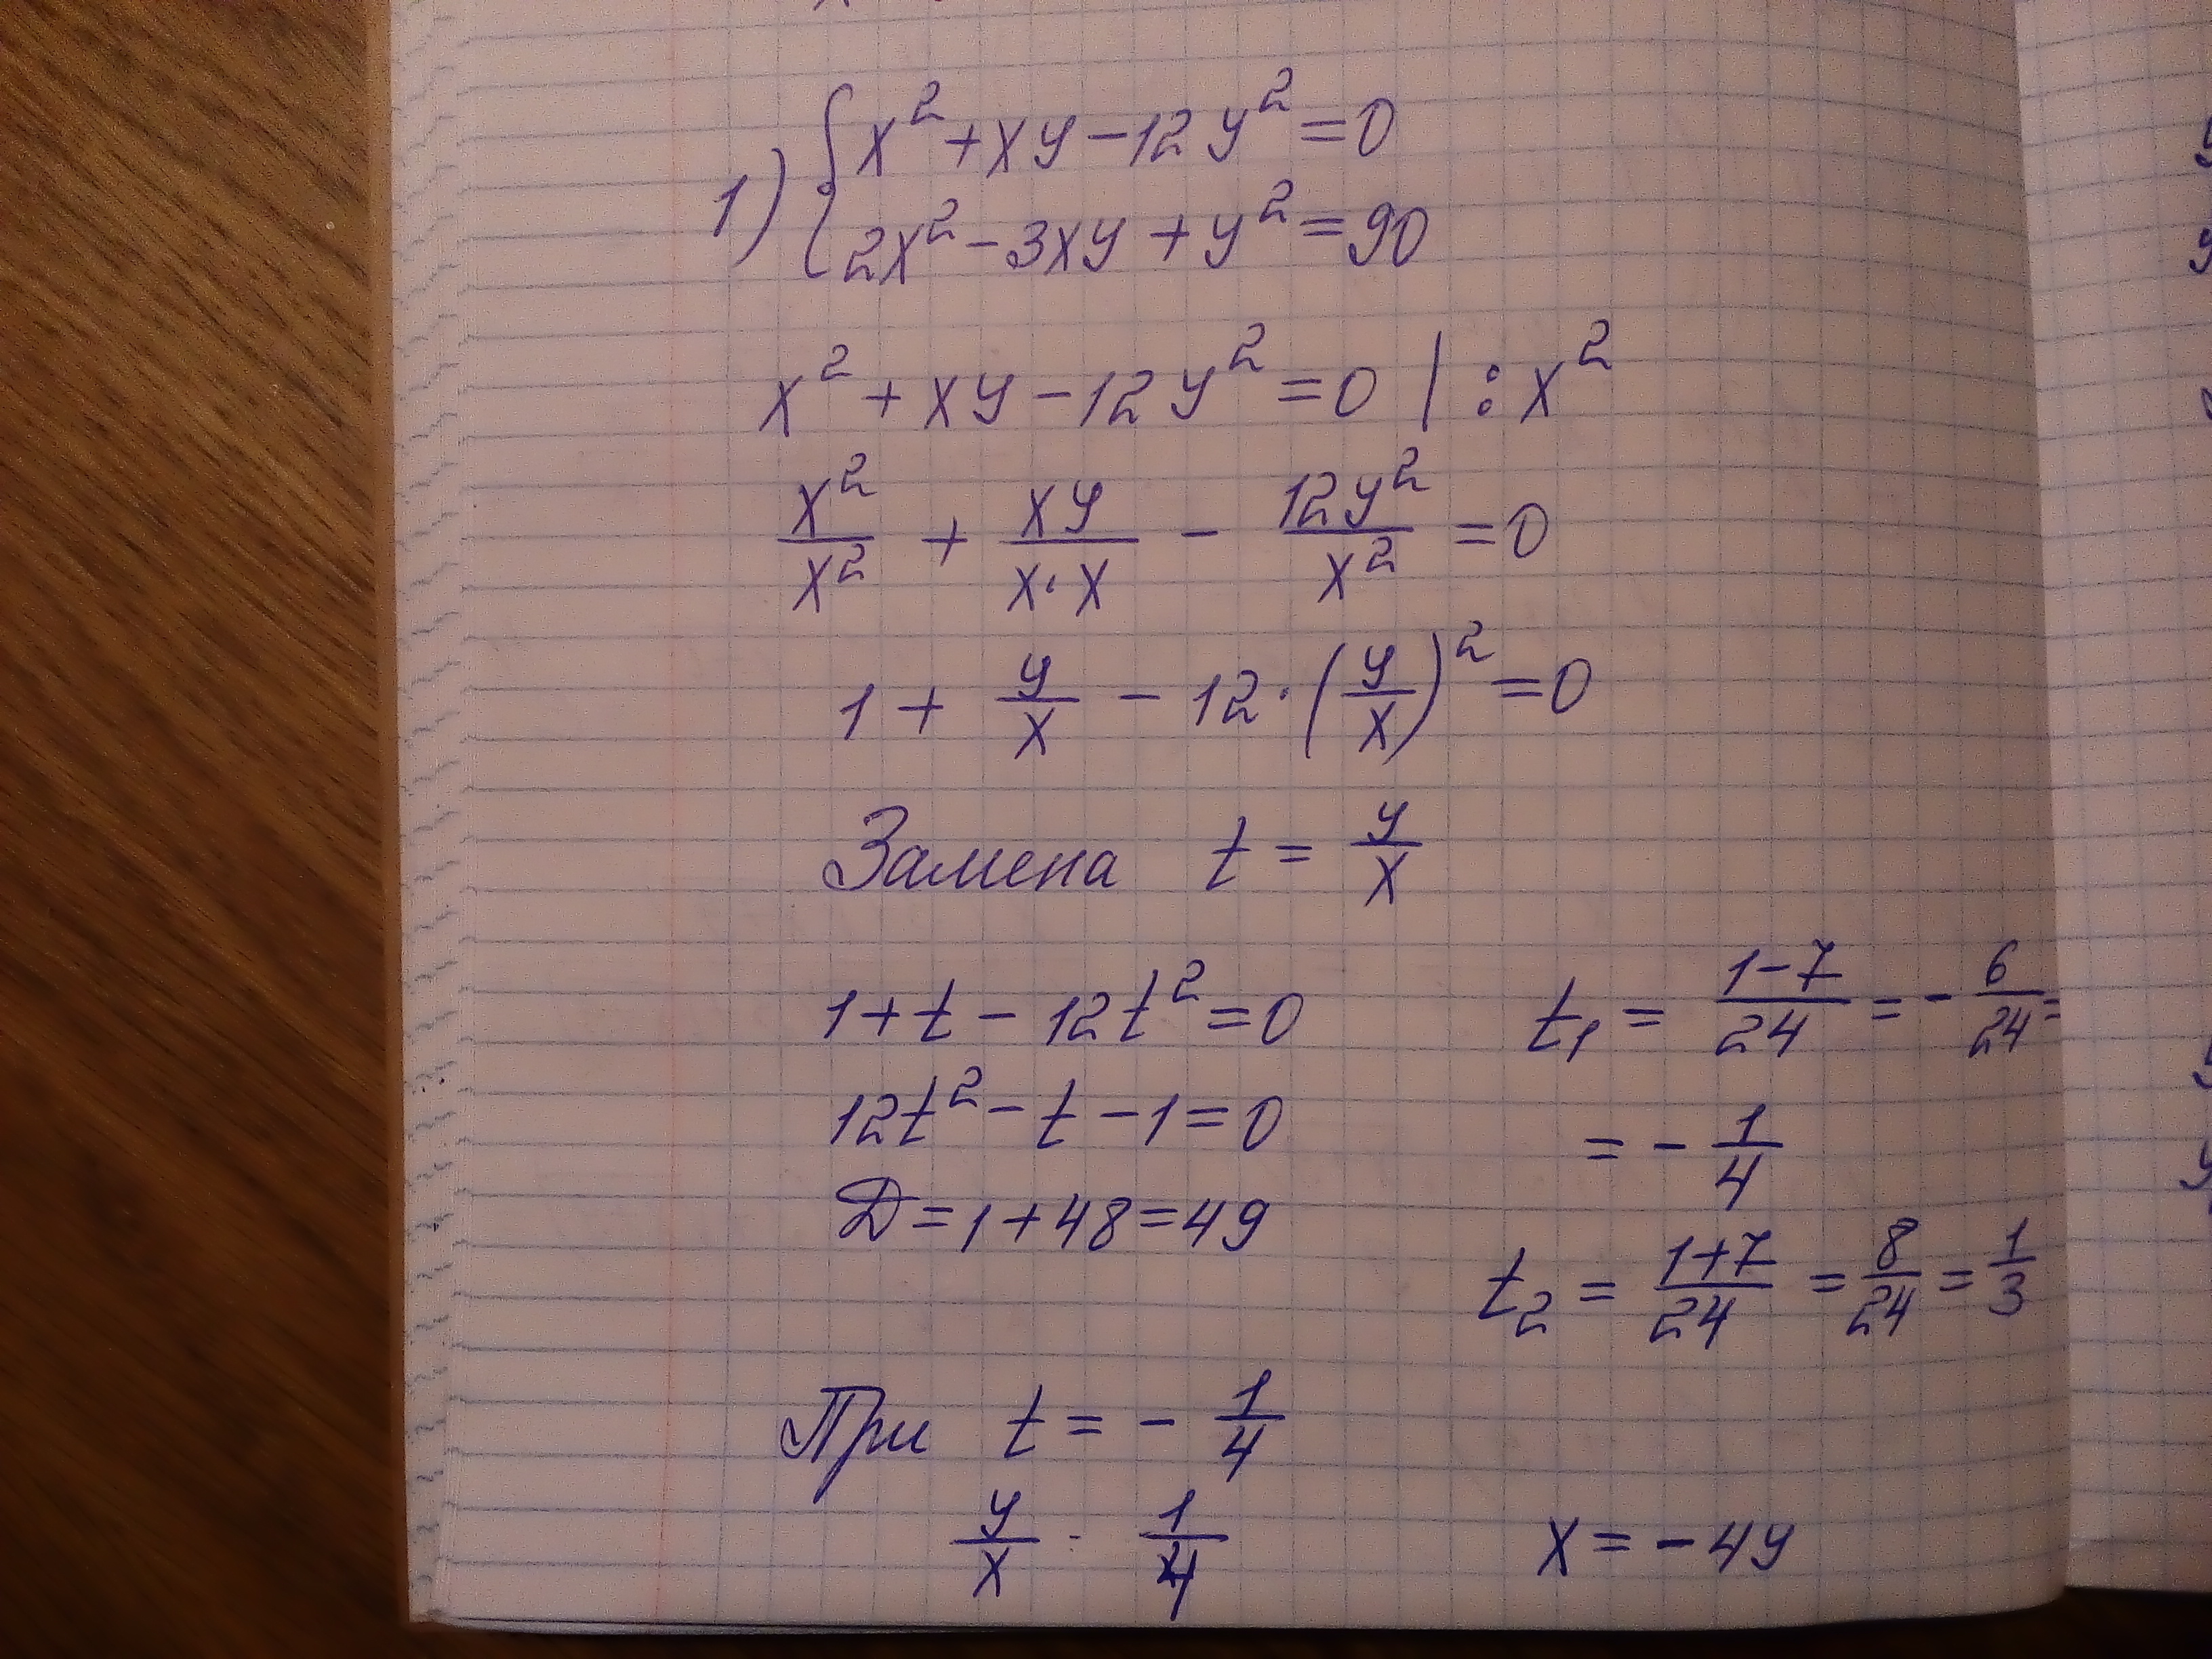 1) { x² + xy - 12y² = 0
2x² - 3xy + y² = 90
x² + xy - 12y² = 0 | : x²
x²/x² + xy/x·x - 12y²/x² = 0
1 + y/x - 12·(y/x)² = 0
Замена t = y/x
1 + t - 12t² = 0
12t² - t - 1 = 0
Д = 1 + 48 = 49
t₁ = 1-7/24 = - 6/24 =
= - 1/4
t₂ = 1+7/24 = 8/24 = 1/3
При t = - 1/4
y/x - 1/4
x = -4y